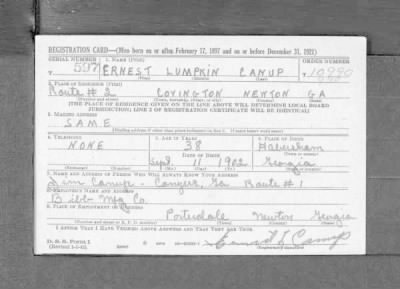 REGISTRATION CARD—(Men born on or after February 17, 1897 and on or before December 31, 1921)
SERIAL NUMBER 1. NAME (Print) ORDER NUMBER
T 597 ERNEST LUMPKIN CANUP
2. PLACE OF RESIDENCE (Print)
Route # 2 COVINGTON NEWTON GA
(Number and street) (Town, township, village, or city) (County) (State)
[THE PLACE OF RESIDENCE GIVEN ON THE LINE ABOVE WILL DETERMINE LOCAL BOARD
JURISDICTION; LINE 2 OF REGISTRATION CERTIFICATE WILL BE IDENTICAL]
3. MAILING ADDRESS
SAME
4. TELEPHONE 5. AGE IN YEARS 6. PLACE OF BIRTH
NONE 38 Habersham
DATE OF BIRTH (Town or county)
Sept. 11 1902 Georgia
7. NAME AND ADDRESS OF PERSON WHO WILL ALWAYS KNOW YOUR ADDRESS
Canup - Conyers, Ga Route # 1
8. EMPLOYER'S NAME AND ADDRESS
Bibb Mfg Co.
9. PLACE OF EMPLOYMENT OR BUSINESS
Porterdale Newton Georgia
I AFFIRM THAT I HAVE VERIFIED ABOVE ANSWERS AND THAT THEY ARE TRUE.
D. S. S. FORM 1